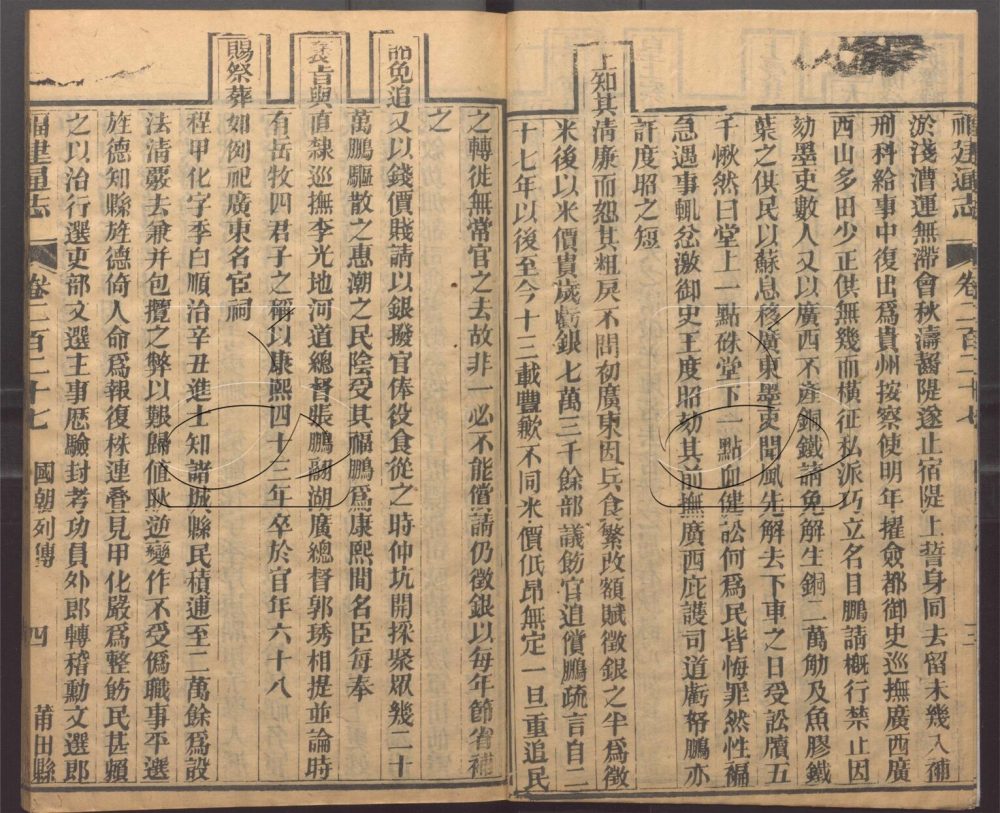 福建通志 卷二百二十七
淤淺漕運無滯會秋濤齧隄遂止宿隄上誓身同去留未幾入補
刑科給事中復出爲貴州按察使明年擢僉都御史巡撫廣西廣
西山多田少正供無幾而橫征私派巧立名目鵬請槪行禁止因
劾墨吏數人又以廣西不產銅鐵請免解生銅二萬觔及魚膠鐵
葉之供民以蘇息移廣東墨吏聞風先解去下車之日受訟牘五
千愀然曰堂上一點硃堂下一點血健訟何爲民皆悔罪然性褊
急遇事輒忿激御史王度昭劾其前撫廣西庇護司道虧帑鵬亦
訐度昭之短
上知其清廉而恕其粗戾不問初廣東因兵食繁改額賦徵銀之半爲徵
米後以米價貴歲虧銀七萬三千餘部議飭官追償鵬疏言自二
十七年以後至今十三載豐歉不同米價低昂無定一旦重追民
之轉徙無常官之去故非一必不能償請仍徵銀以每年節省補
之
詔免追又以錢價賤請以銀撥官俸役食從之時仲坑開採聚眾幾二十
萬鵬驅散之惠潮之民陰受其福鵬爲康熙間名臣每奉
褒旨與直隸巡撫李光地河道總督張鵬翮湖廣總督郭琇相提並論時
有岳牧四君子之稱以康熙四十三年卒於官年六十八
賜祭葬如例祀廣東名宦祠
程甲化字季白順治辛丑進士知諸城縣民積逋至二萬餘爲設
法清嚴去兼幷包攬之弊以艱歸値耿逆變作不受僞職事平選
旌德知縣旌德倚人命爲報復株連疊見甲化嚴爲整飭民甚賴
之以治行選吏部文選主事歷驗封考功員外郎轉稽勳文選郎
福建通志 卷二百二十七 國朝列傳 四 莆田縣